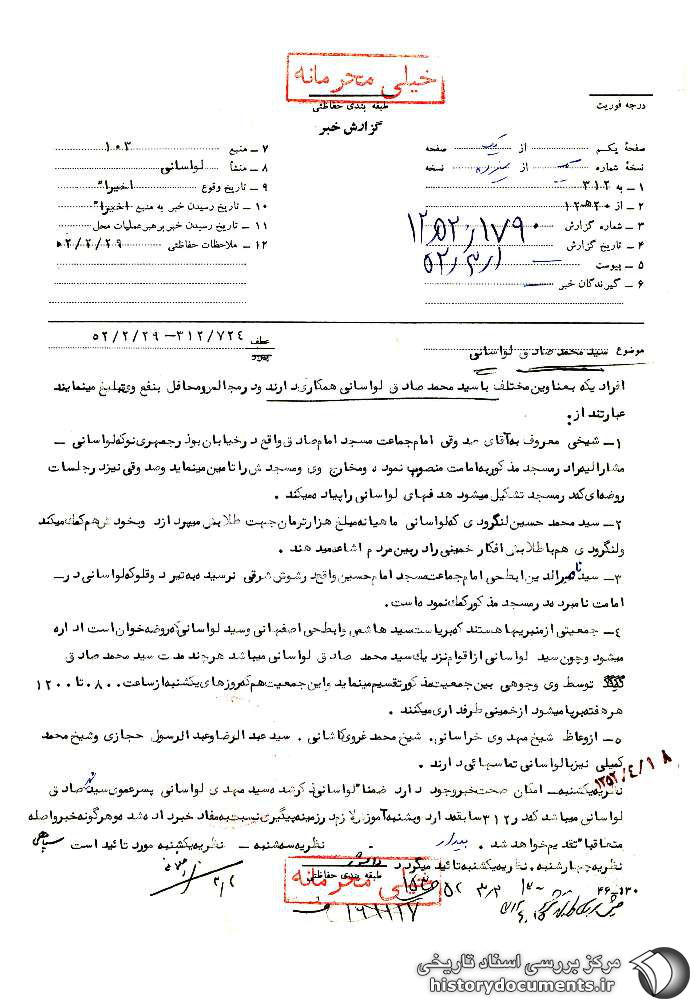 خیلی محرمانه
طبقه بندی حفاظتی
گزارش خبر
درجه فوریت
صفحهٔ یکم از یک صفحه
نسخهٔ شماره از نسخه
۱ – به ۳۱۲
۲ – از ۲۰هـ۱۲
۳ – شماره گزارش ۱۲۵۲۰٫۱۷۹۰
۴ – تاریخ گزارش ۵۲٫۳٫۱
۵ – پیوست
۶ – گیرندگان خبر
۷ – منبع ۱۰۳
۸ – منشأ لواسانی
۹ – تاریخ وقوع اخیرا"
۱۰ – تاریخ رسیدن خبر به منبع اخیرا"
۱۱ – تاریخ رسیدن خبر برهبر عملیات محل
۱۲ – ملاحظات حفاظتی ۵۲/۲/۲۹
عطف ۳۱۲/۷۲۴–۵۲/۲/۲۹
موضوع سید محمد صادق لواسانی
افرادیکه بعناوین مختلف با سید محمد صادق لواسانی همکاری دارند و در مجالس و محافل بنفع وی تبلیغ مینمایند
عبارتند از :
۱– شیخی معروف به آقای صدوقی امام جماعت مسجد امام صادق واقع در خیابان بوذرجمهری نو که لواسانی –
مشارالیه را در مسجد مذکور به امامت منصوب نموده و مخارج وی و مسجدش را تامین مینماید و صدوقی نیز در جلسات
روضه ای که در مسجد تشکیل میشود هدفهای لواسانی را پیاده میکند .
۲– سید محمد حسین لنگرودی که لواسانی ماهیانه مبلغ هزار تومان جهت طلابش میپردازد و بخودش هم کمک میکند
ولنگرودی هم با طلابش افکار خمینی را در بین مردم اشاعه میدهند .
۳– سید ناصرالدین ابطحی امام جماعت مسجد امام حسین واقع در شوش شرقی نرسیده به تیردوقلو که لواسانی در–
امامت نامبرده در مسجد مذکور کمک نموده است .
۴– جمعیتی از منبریها هستند که بریاست سید هاشمی وابطحی اصفهانی و سید لواسانی که روضه خوان است اداره
میشود و چون سید لواسانی از اقوام نزدیک سید محمد صادق لواسانی میباشد هر چند مدت سید محمد صادق
توسط وی وجوهی بین جمعیت مذکور تقسیم مینماید و این جمعیت هم که روزهای یکشنبه از ساعت ۰۸۰۰ تا ۱۲۰۰
هر هفته برپا میشود از خمینی طرفداری میکنند .
۵– از وعاظ شیخ مهدوی خراسانی . شیخ محمد غروی کاشانی . سید عبدالرضا و عبدالرسول حجازی و شیخ محمد
کمیلی نیز با لواسانی تماسهائی دارند .
۱۳۵۲/۴/۱۸
نظریه یکشنبه – امکان صحت خبر وجود دارد ضمنا" لواسانی ذکر شده سید مهدی لواسانی پسر عموی سید محمد صادق
لواسانی میباشد که در ۳۱۲ سابقه دارد و بشنبه آموزش لازم در زمینه پیگیری نسبت به مفاد خبر داده شد و هر گونه خبر واصله
متعاقبا" تقدیم خواهد شد . بیدار – نظریه سه شنبه – نظریه یکشنبه مورد تائید است
نظریه چهارشنبه . نظریه یکشنبه تائید میگردد
طبقه بندی حفاظتی
خیلی محرمانه
۱۶۱۱۱۷
۴۶–۱۳۰
مرکز بررسی اسناد تاریخی
historydocuments.ir